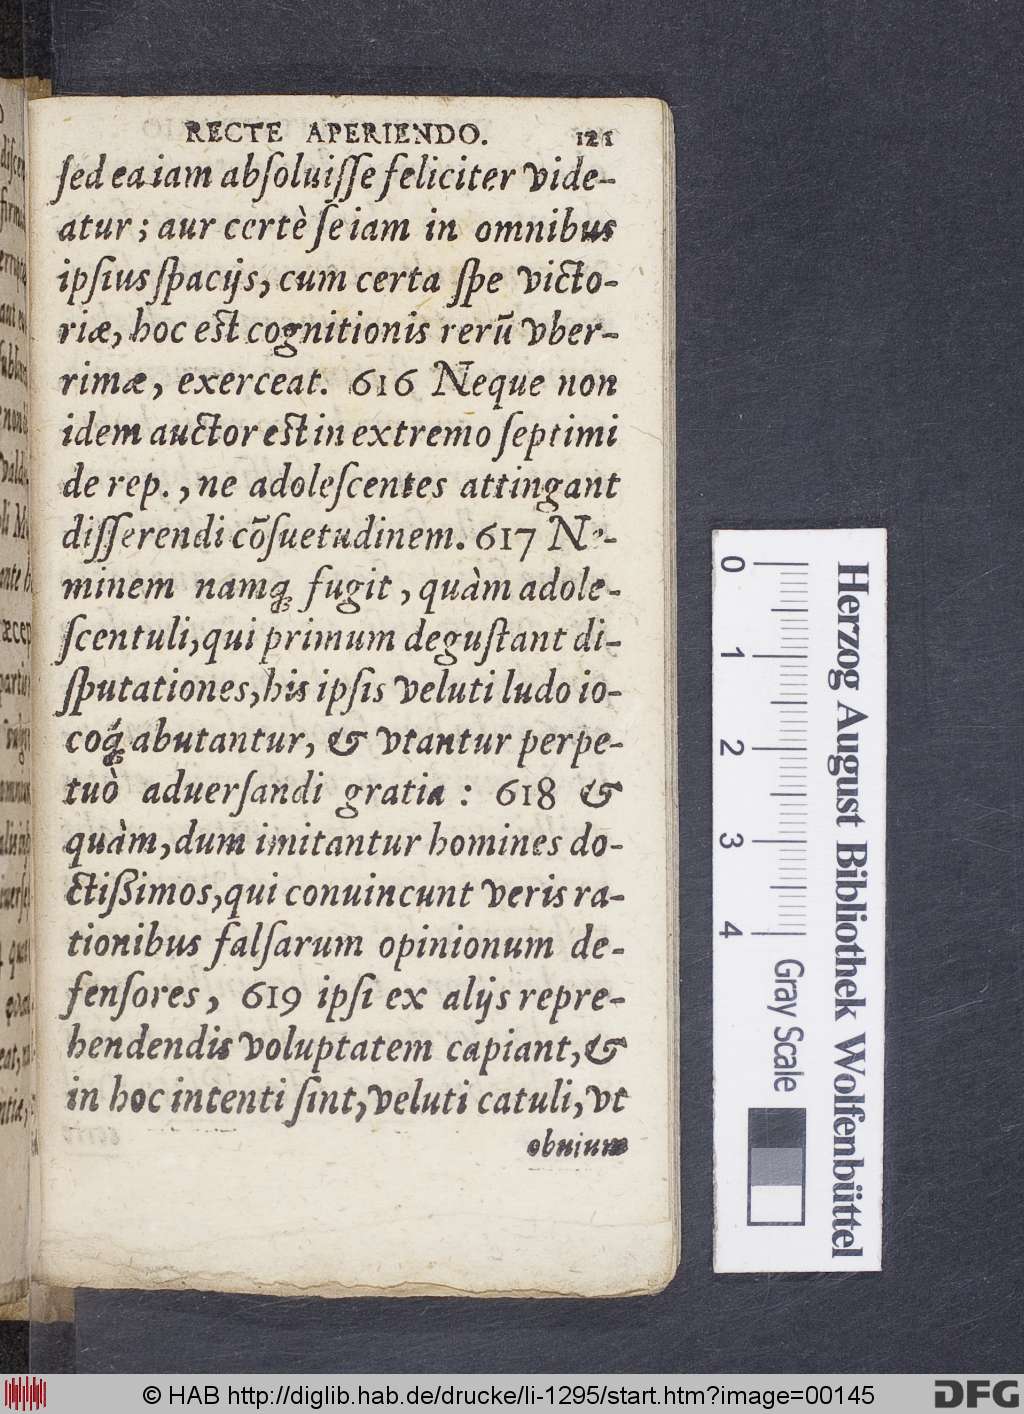 RECTE APERIENDO. 121
ſed ea iam abſoluiſſe feliciter vide-
atur; aur certè ſe iam in omnibus
ipſius ſpacijs, cum certa ſpe victo-
riæ, hoc est cognitionis rerũ vber-
rimæ, exerceat. 616 Neque non
idem auctor est in extremo ſeptimi
de rep., ne adoleſcentes attingant
diſſerendi cõſuetudinem. 617 Ne-
minem namq́; fugit, quàm adole-
ſcentuli, qui primum deguſtant di-
ſputationes, his ipſis veluti ludo io-
coq́; abutantur, & vtantur perpe-
tuò aduerſandi gratia : 618 &
quàm, dum imitantur homines do-
ctiſsimos, qui conuincunt veris ra-
tionibus falſarum opinionum de-
fenſores, 619 ipſi ex alijs repre-
hendendis voluptatem capiant, &
in hoc intenti ſint, veluti catuli, vt
obuium
0 1 2 3 4 Gray Scale
Herzog August Bibliothek Wolfenbüttel
© HAB http://diglib.hab.de/drucke/li-1295/start.htm?image=00145
DFG